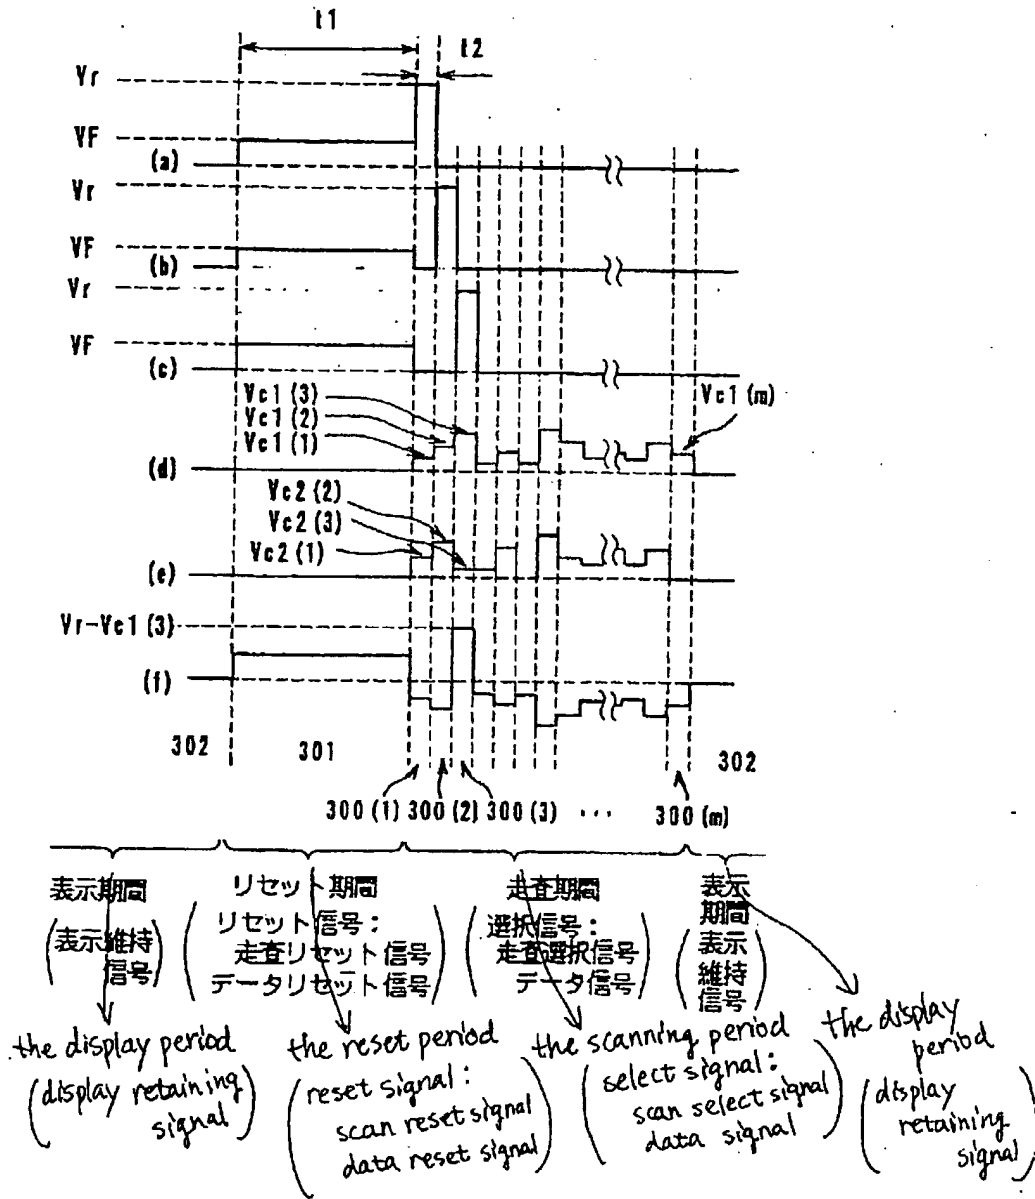 t1
t2
Vr
VF
(a)
Vr
VF
(b)
Vr
VF
(c)
Vc1(3)
Vc1(2)
Vc1(1)
Vc1(m)
(d)
Vc2(2)
Vc2(3)
Vc2(1)
(e)
Vr-Vc1(3)
(f)
302
301
302
300(1) 300(2) 300(3) ... 300(m)
表示期間
(表示維持
信号)
リセット期間
(リセット信号:
走査リセット信号
データリセット信号)
走査期間
(選択信号:
走査選択信号
データ信号)
表示
期間
(表示
維持
信号)
the display period
(display retaining
signal)
the reset period
(reset signal:
scan reset signal
data reset signal)
the scanning period
(select signal:
scan select signal
data signal)
the display
period
(display
retaining
signal)